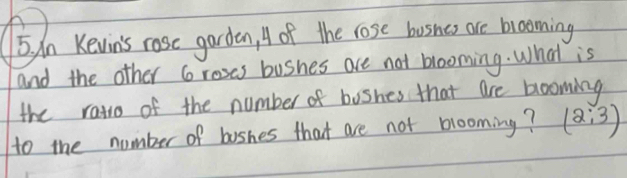 5. In Kevin's rose garden, 4 of the rose bushes are blooming
and the other 6 roses bushes are not blooming. What is
the ratio of the number of bushes that are blooming
to the number of bushes that are not blooming? (2:3)